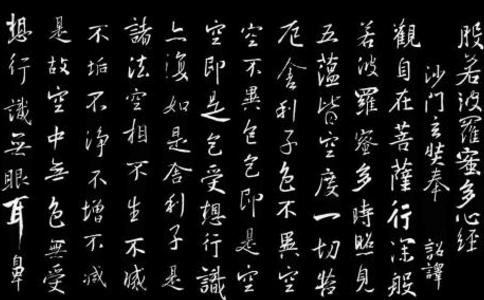 般若波羅蜜多心經
沙门玄奘奉 詔譯
觀自在菩薩行深般
若波羅蜜多時照見
五蘊皆空度一切苦
厄舍利子色不異空
空不異色色即是空
空即是色受想行識
亦復如是舍利子是
諸法空相不生不滅
不垢不净不增不减
是故空中無色無受
想行識無眼耳鼻